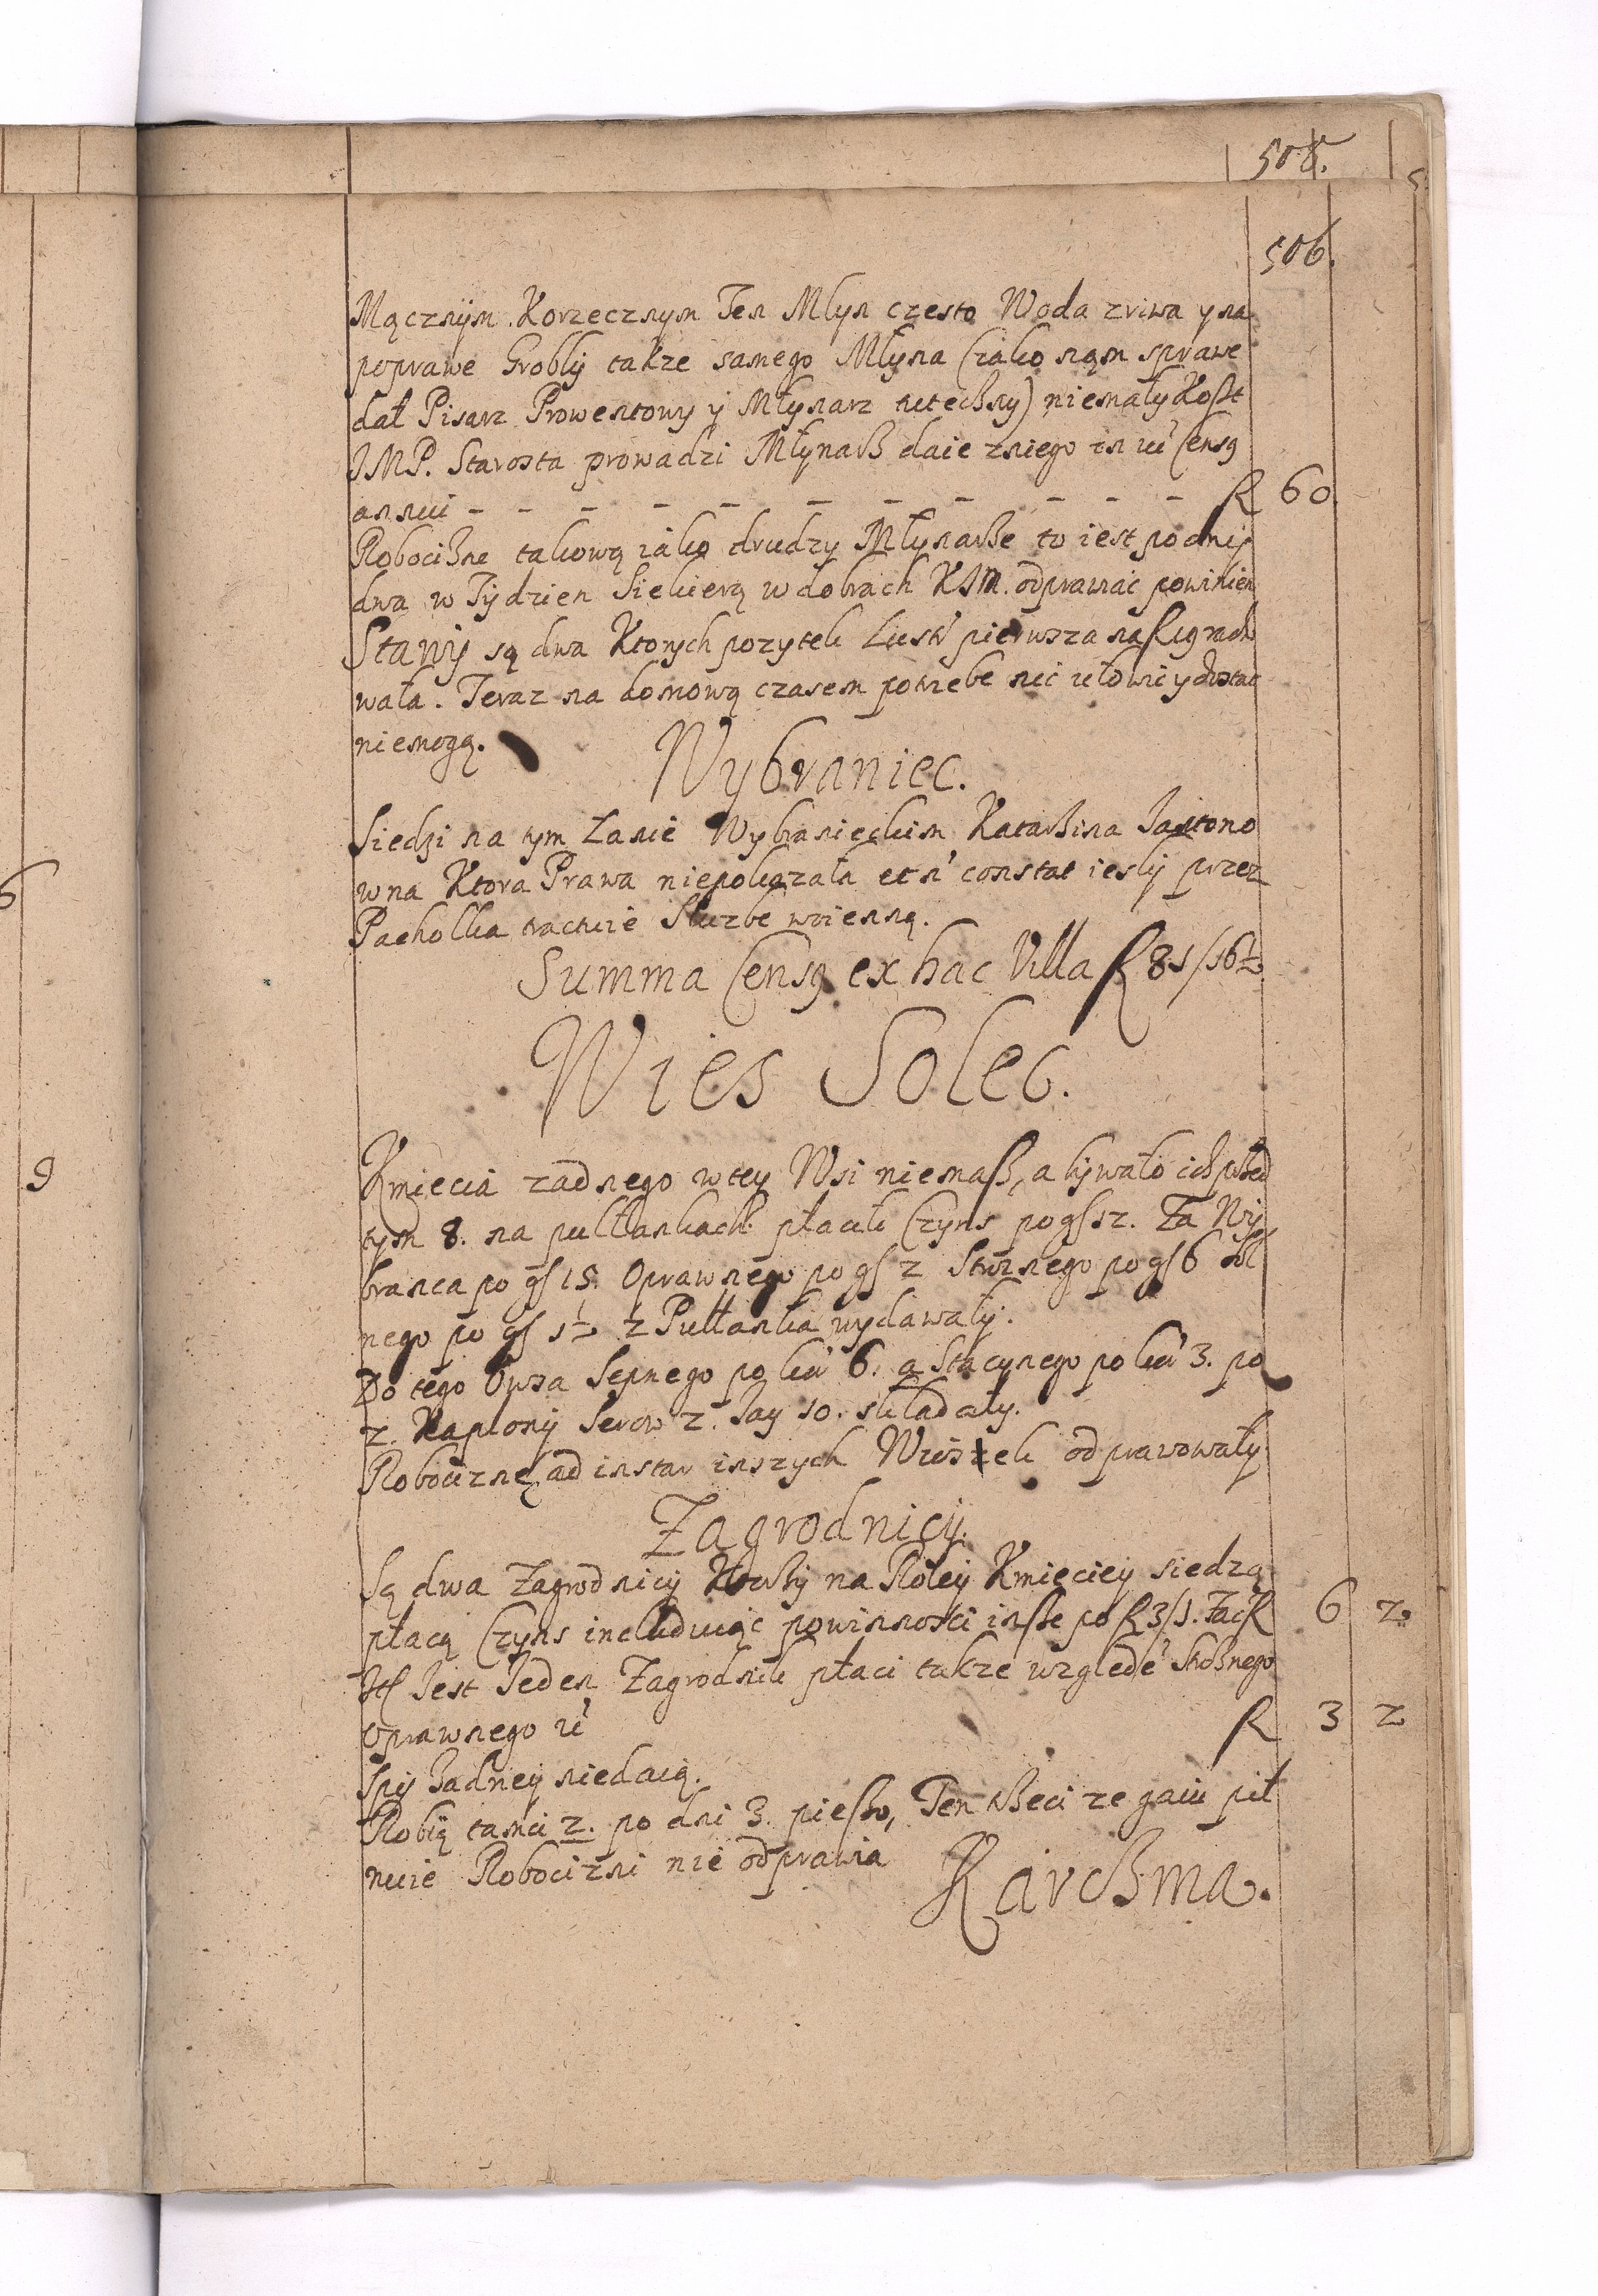 508.
506.
Mącznÿm. Korzecznym Ten Mlyn czesto Woda zriwa y na
poprawe Groblÿ takze samego Młyna (iako nąm sprawe
dał Pisarz Prowentowy ÿ Młynarz tuteczny) niemały Koszt
JMP. Starosta prowadzi Młynarß daie zniego
annui - - - - - - - - - - fl 60
Robocißne takową iako drudzy Młynarße to iest po dnÿ
dwa w Tÿdzien Siekierą w dobrach KJM. odprawiać powinien
Stawÿ są dwa Ktorych pozytek Lustr pierwsza na
wała. Teraz na domową czasem potrzebe nic ułowic y dostac
niemogą.
Wybraniec.
Siedzi na tym Łanie Wybranieckim Katarßina
wna Ktora Prawa niepokazała et n constat ieslÿ przez
Pachołka tractuie Słuzbe woienną.
Summa Censg ex hac Villa fl 81/16½
Wies Solec.
Kmiecia zadnego wtey Wsi niemaß, a bÿwało ich przed
tym 8. na pułłankach płacili Czyns po gs 12. Za Wÿ
branca po gs 15. Oprawnego po gs 2 Strożnego po gs 6
nego po gs 1½ z Pułłanka wydawałÿ.
Do tego Owsa Sepnego po 6. a Stacynego po 3. po
2. Kapłonÿ Serow 2. Jay 10. składały.
Robociznę ad instar inszych Wiosek odprawowałÿ
Zagrodnicÿ.
Są dwa Zagrodnicÿ Ktorßÿ na Roleÿ Kmieciey siedzą
płacą Czyns includuiąc powinności insße po fl 3/1. Fac fl 6 2.
Jest Jeden Zagrodnik płaci takze wzglede Strożnego
Oprawnego fl 3 2
Spÿ Zadneÿ niedaią.
Robią tamci 2. po dni 3. pießo, Ten trßeci ze gaiu pil
nuie Robocizni nie odprawia
Karcßma.
6
9